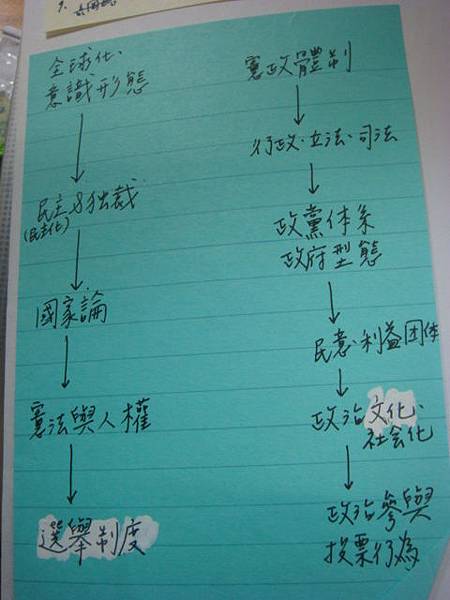 全球化、
意識形態
民主&独裁
(民主化)
國家論
憲法與人權
選舉制度
憲政體制
行政、立法、司法
政黨体系
政府型態
民意、利益团体
政治文化、
社会化
政治參與
投票行為